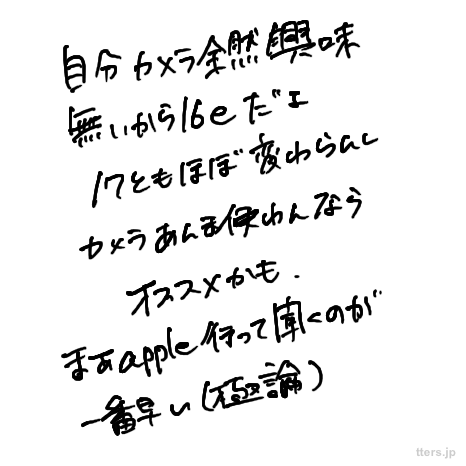 自分カメラ全然興味
無いから16eだェ
17ともほぼ変わらんし
カメラあんま使わんなら
オススメかも.
まぁapple行って聞くのが
一番早い(極論)
tters.jp